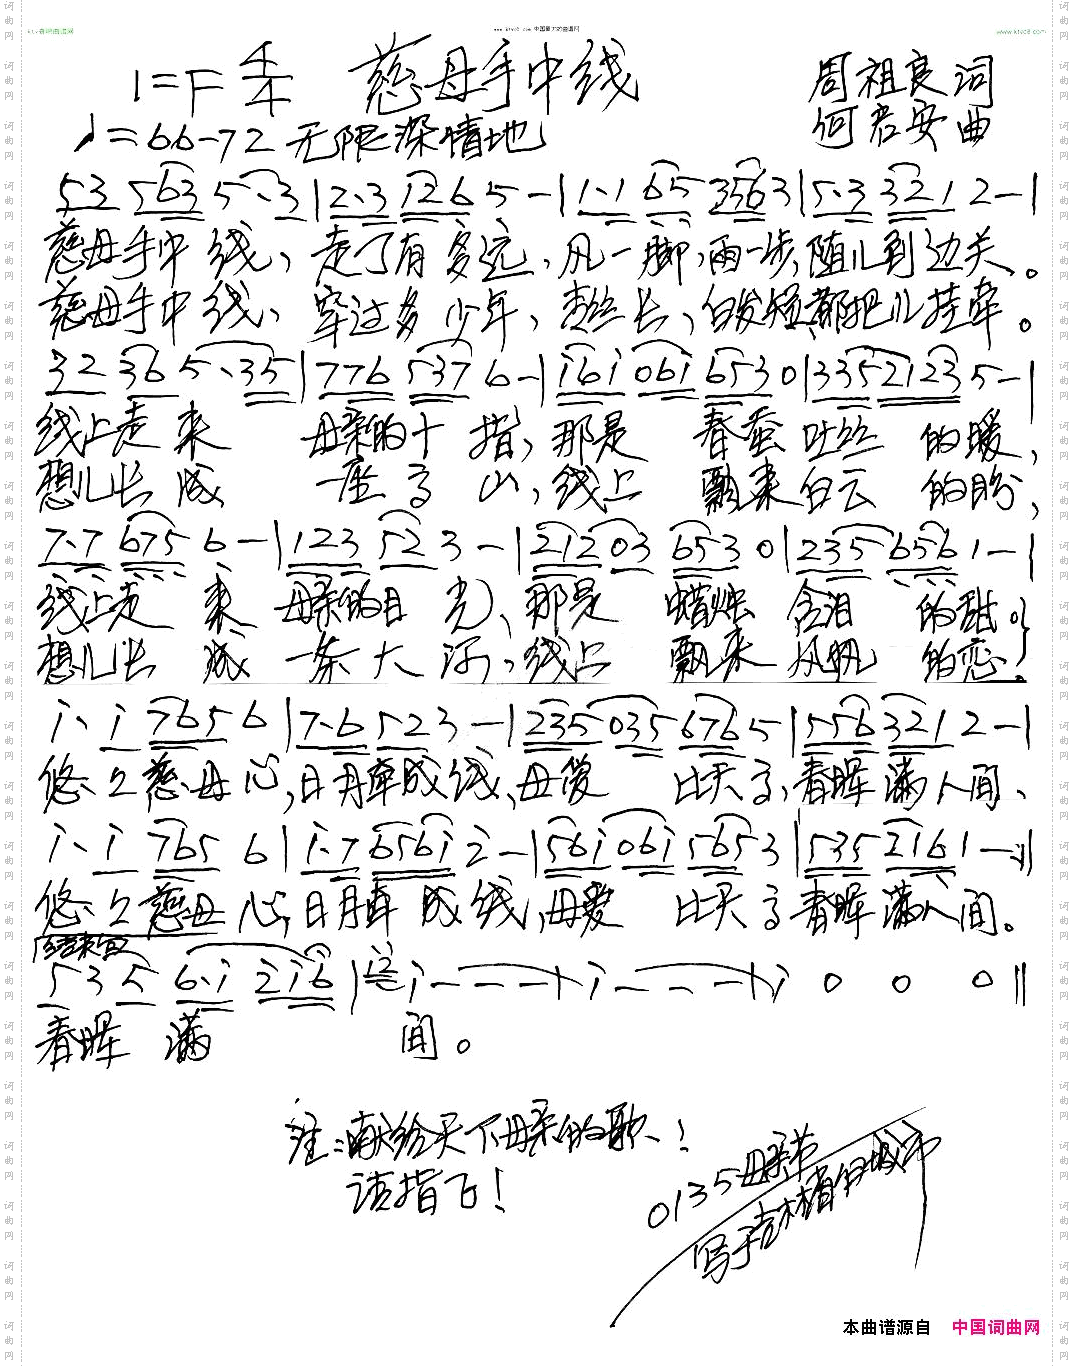 ktvc8曲谱网
www.ktvc8.com 中国最大的曲谱网
www.ktvc8.com
1=F 4/4 慈母手中线 周祖良 词
♩=66-72 无限深情地 何君安 曲
53 563 5·3 | 2·3 126 5 - | 1·1 65 3563 | 5·3 321 2 - |
慈母手中线、走了有多远,风一脚,雨一步,随儿到边关。
慈母手中线、穿过多少年、丝长、白发短,都把儿挂牵。
32 36 5·35 | 776 537 6 - | i6i 06i 653 0 | 335 2123 5 - |
线上走来 母亲的十指,那是 春蚕吐丝的暖,
想儿长成 一座高山,线上 飘来白云的盼,
7·7 675 6 - | 123 52 3 - | 212 03 653 0 | 235 656 1 - |
线上走来 母亲的目光、那是 蜡烛含泪的甜。
想儿长成 一条大河,线上 飘来风帆的恋。
i· i 765 6 | 7·6 523 - | 235 035 676 5 | 556 321 2 - |
悠々慈母心,日月牵成线、母爱 比天高,春晖满人间、
i· i 765 6 | i·7 656i 2 - | 56i 06i 565 3 | 535 216 1 - :||
悠々慈母心,日月牵成线,母爱 比天高 春晖满人间。
结束句
5 3 5 6·i 2i6 | i2 i - - - | i - - - | i 0 0 0 ||
春晖 满 间。
注:献给天下母亲的歌、!
请指飞!
0135母亲节
写于吉林省白城市
本曲谱源自 中国词曲网
词曲网